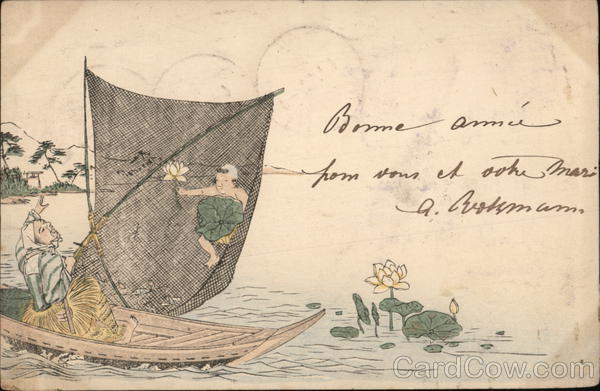 Bonne année
pour vous et votre Mari
CardCow.com